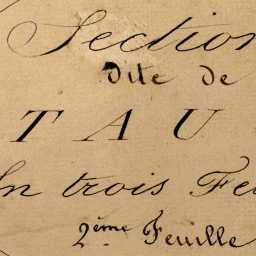 Section
dite de
TAU
In trois Fe
2ème Feuille